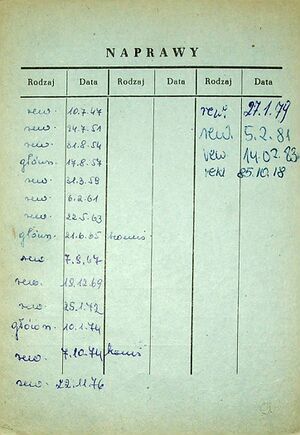 NAPRAWY
Rodzaj Data Rodzaj Data Rodzaj Data
rew. 10.7.47
rew. 24.7.51
rew. 31.8.54
główn. 17.8.57
rew. 31.3.59
rew. 6.2.61
rew. 22.5.63
główn. 21.6.65
rew 7.9.67
rew. 18.12.69
rew. 25.1.72
główn. 10.1.74
rew. 7.10.74
rew. 22.11.76
rew. 27.1.79
rew. 5.2.81
rew. 14.02.